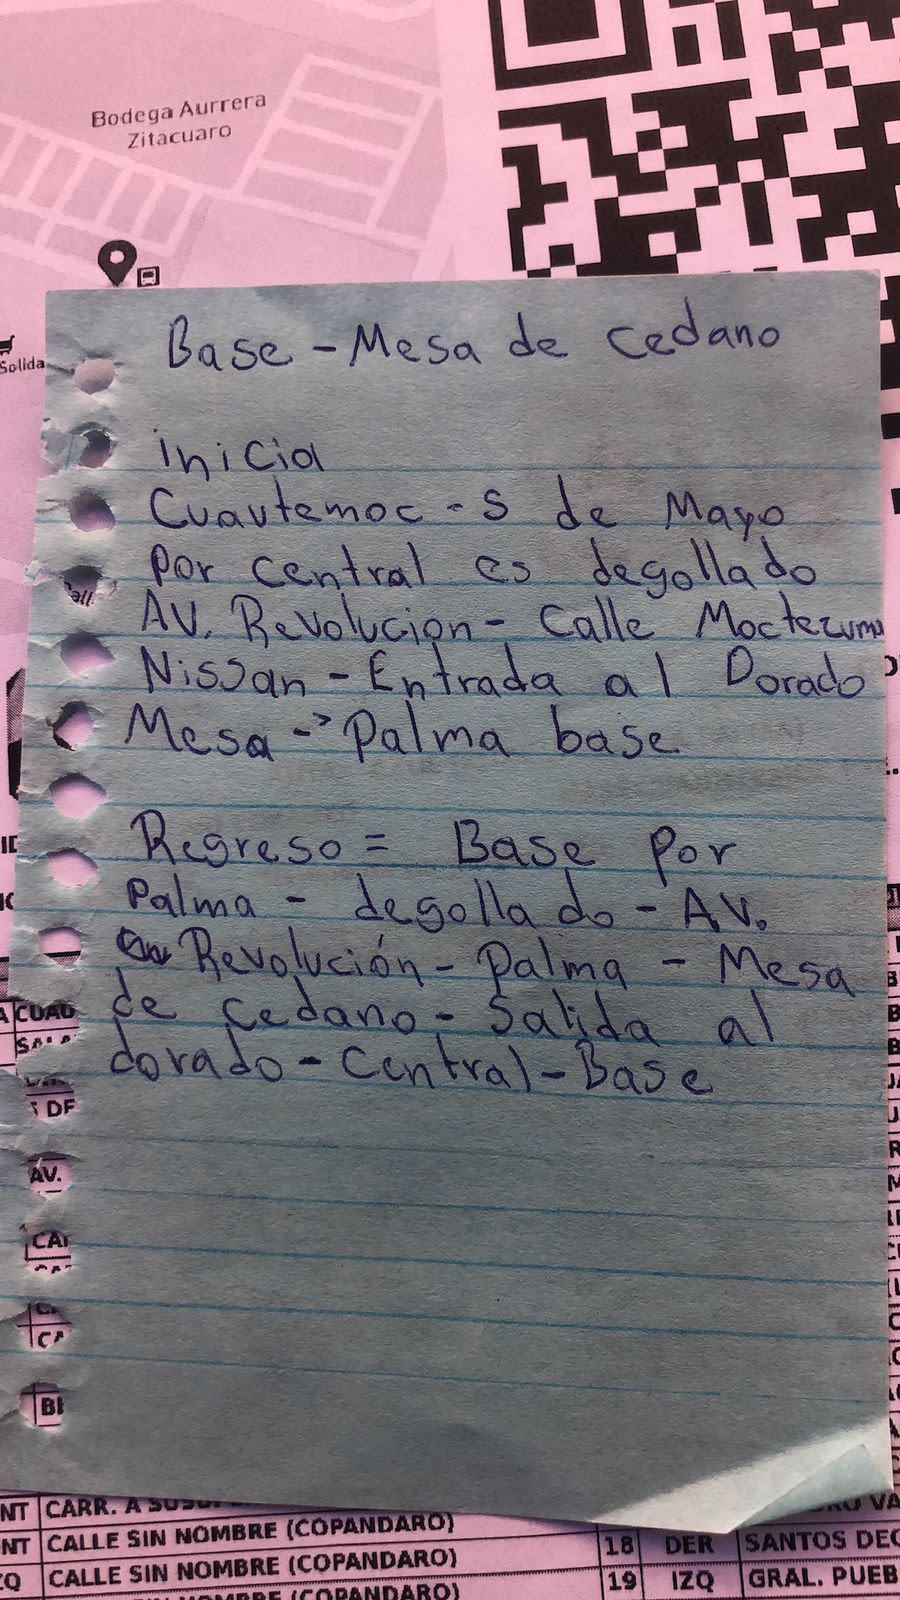 Bodega Aurrera
Zitacuaro
Solida
Base - Mesa de Cedano
inicia
Cuautemoc - 5 de Mayo
por central es degollado
AV. Revolucion - Calle Moctezuma
Nissan - Entrada al Dorado
Mesa -> Palma base
Regreso = Base por
Palma - degollado - AV.
Revolución - Palma - Mesa
de Cedano - Salida al
dorado - Central - Base
CUAD
DF
AV.
NT CARR. A
NT CALLE SIN NOMBRE (COPANDARO) 18 DER SANTOS DEG
ZQ CALLE SIN NOMBRE (COPANDARO) 19 IZQ GRAL. PUEB